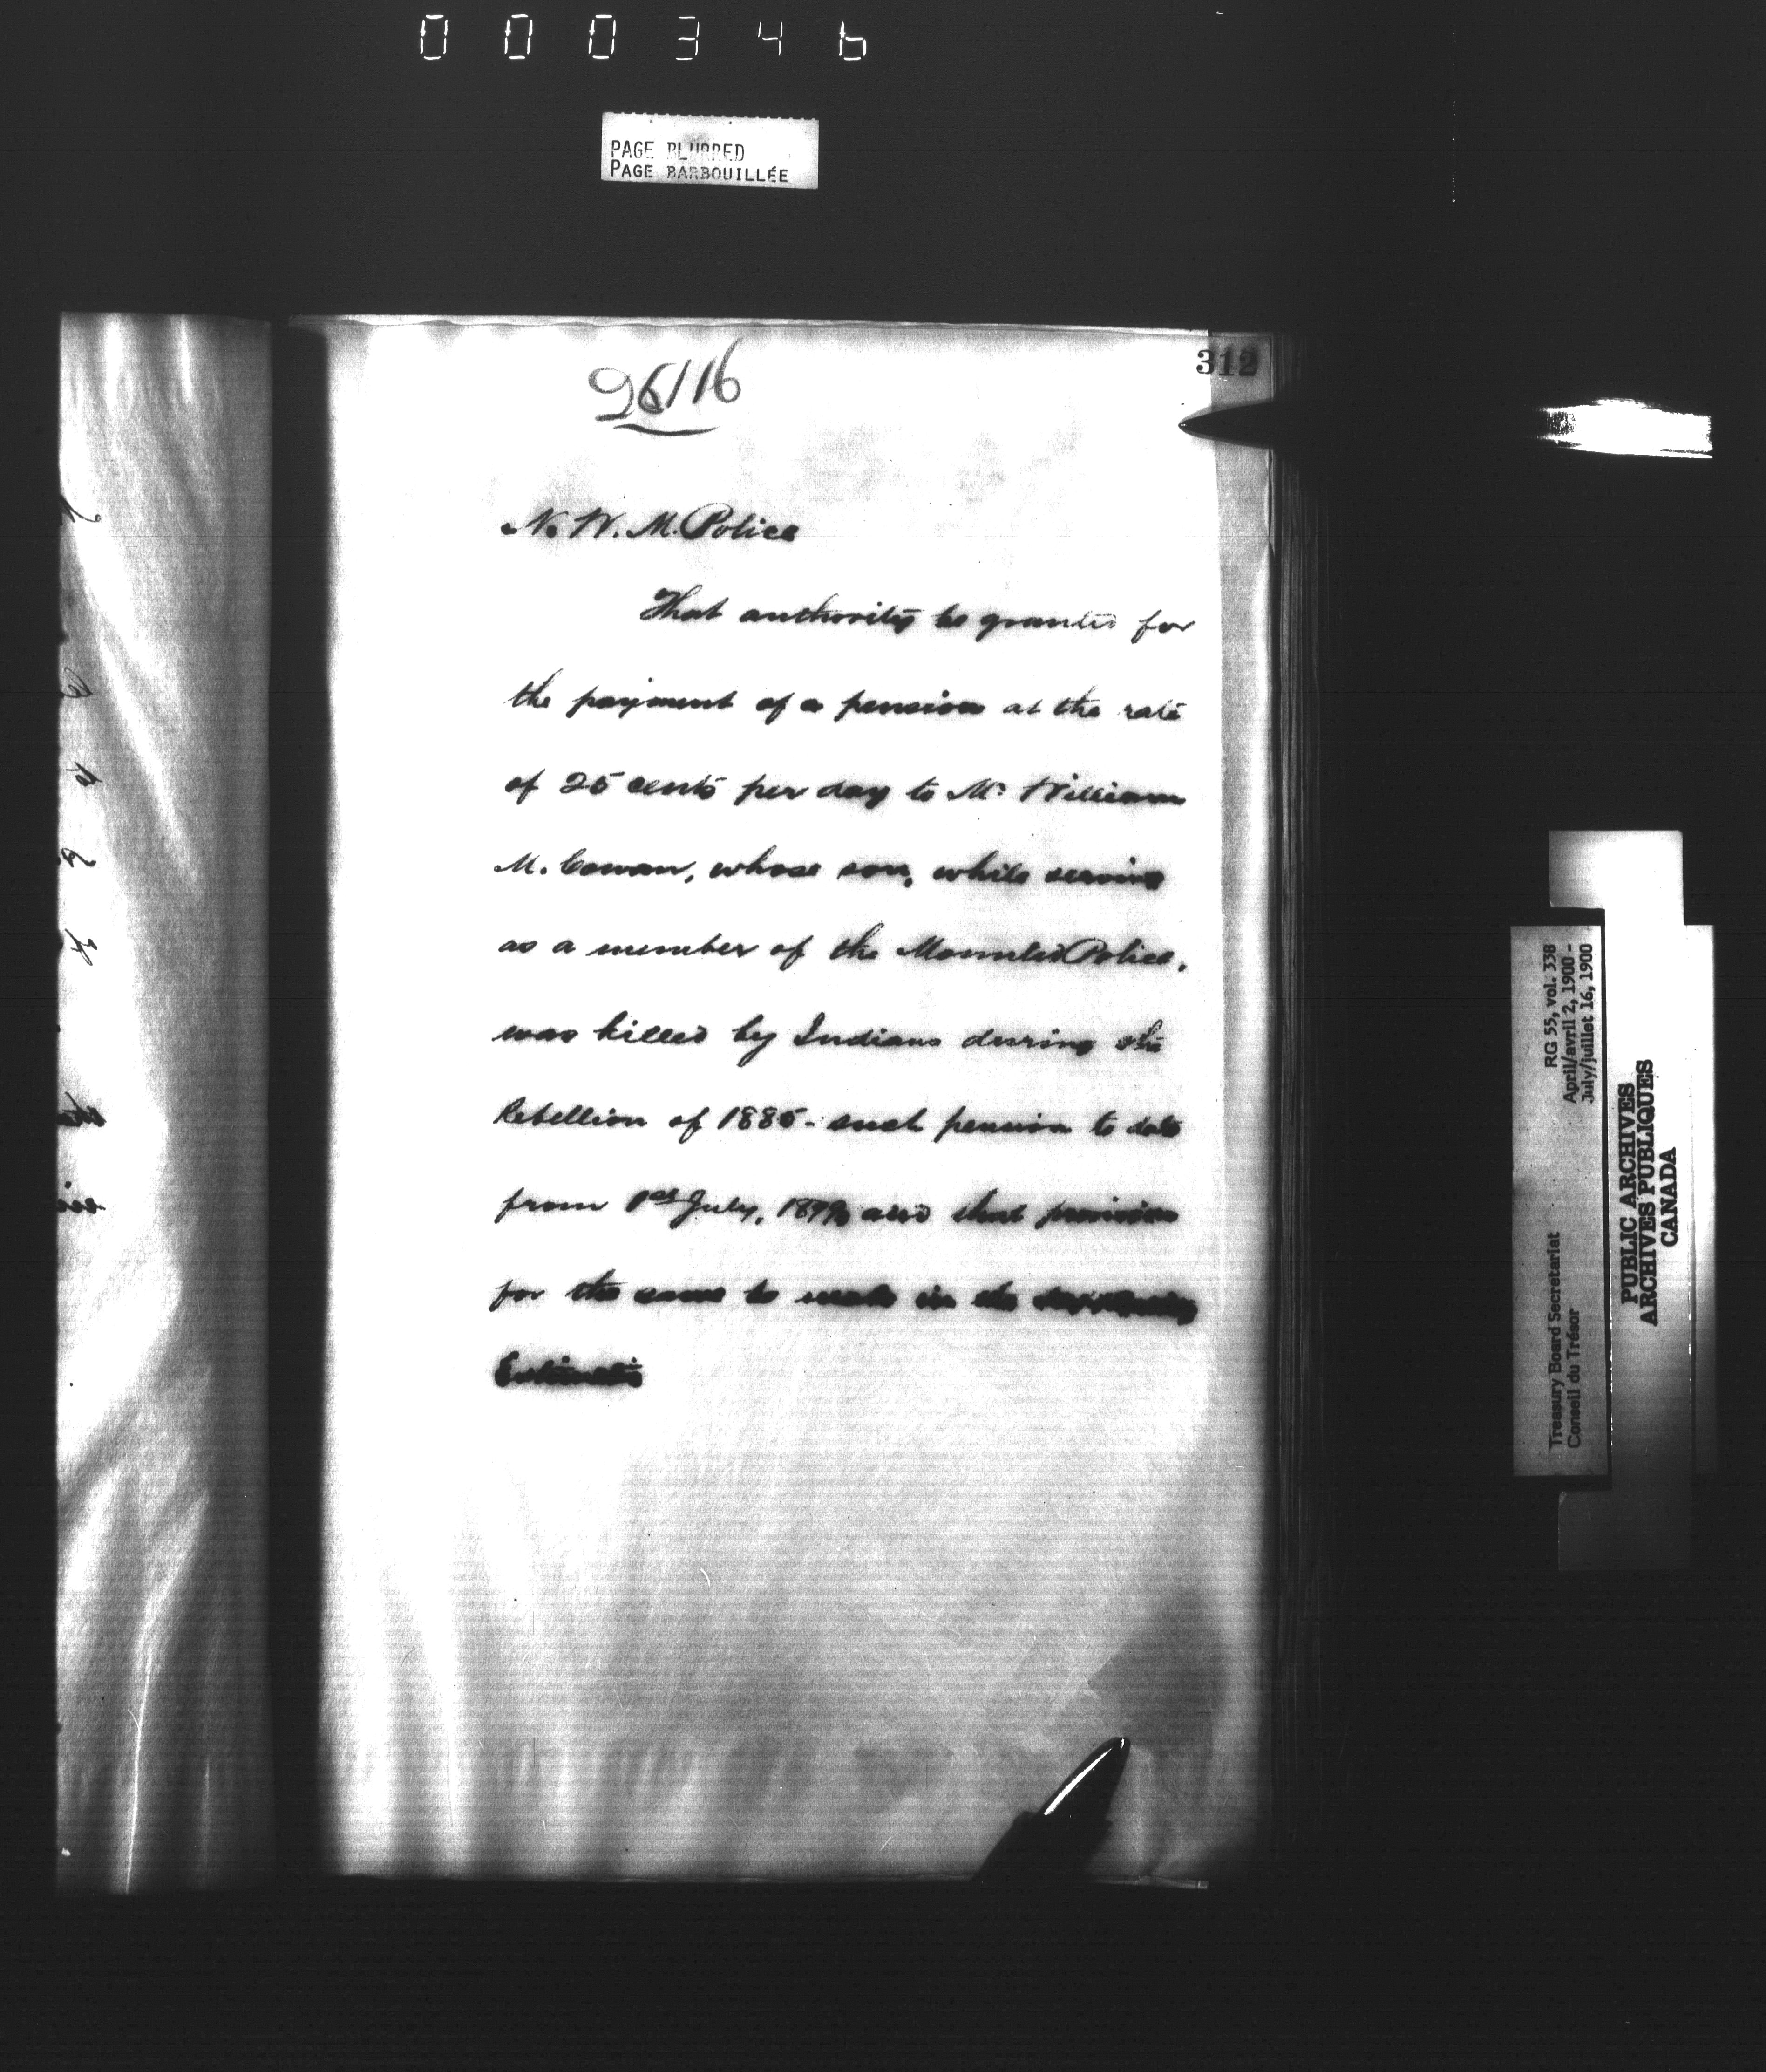 000346
PAGE BLURRED
PAGE BARBOUILLÉE
312
26116
N. W. M. Police
That authority be granted for
the payment of a pension at the rate
of 25 cents per day to Mr William
M. Cowan, whose son, while serving
as a member of the Mounted Police,
was killed by Indians during the
Rebellion of 1885 - such pension to date
from 1st July, 1899, and that provision
for the same to made in the
Estimates
RG 55, vol. 338
April/avril 2, 1900 -
July/juillet 16, 1900
Treasury Board Secretariat
Conseil du Trésor
PUBLIC ARCHIVES
ARCHIVES PUBLIQUES
CANADA